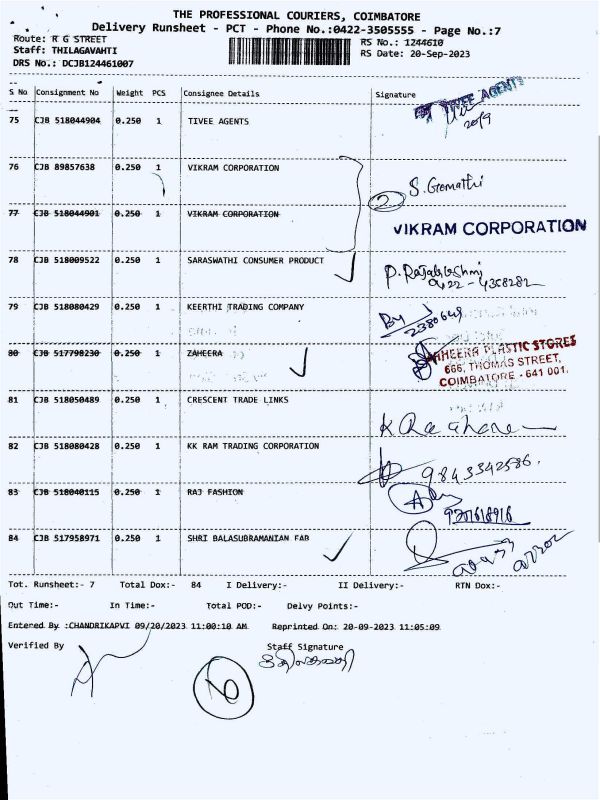 THE PROFESSIONAL COURIERS, COIMBATORE
Delivery Runsheet - PCT - Phone No.:0422-3505555 - Page No.:7
Route: R G STREET RS No.: 1244610
Staff: THILAGAVAHTI RS Date: 20-Sep-2023
DRS No.: DCJB124461007
S No Consignment No Weight PCS Consignee Details Signature
75 CJB 518044904 0.250 1 TIVEE AGENTS
TIVEE AGENTS
20/9
76 CJB 89857638 0.250 1 VIKRAM CORPORATION
S. Gomathi
2
77 CJB 518044901 0.250 1 VIKRAM CORPORATION
VIKRAM CORPORATION
78 CJB 518009522 0.250 1 SARASWATHI CONSUMER PRODUCT
P. Rajalakshmi
0422-4368282
79 CJB 518080429 0.250 1 KEERTHI TRADING COMPANY
2380649
80 CJB 517798230 0.250 1 ZAHEERA
ZAHEERA PLASTIC STORES
666, THOMAS STREET,
COIMBATORE - 641 001.
81 CJB 518050489 0.250 1 CRESCENT TRADE LINKS
82 CJB 518080428 0.250 1 KK RAM TRADING CORPORATION
9843342586.
83 CJB 518040115 0.250 1 RAJ FASHION
84 CJB 517958971 0.250 1 SHRI BALASUBRAMANIAN FAB
Tot. Runsheet:- 7 Total Dox:- 84 I Delivery:- II Delivery:- RTN Dox:-
Out Time:- In Time:- Total POD:- Delvy Points:-
Entered By :CHANDRIKAPVI 09/20/2023 11:00:10 AM Reprinted On: 20-09-2023 11:05:09
Verified By Staff Signature